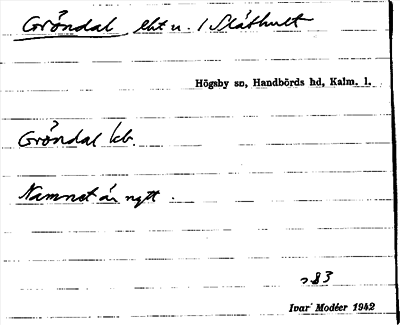 Gröndal lht u. 1 Slåthult
Högsby sn, Handbörds hd, Kalm. l.
Gröndal kb.
Namnet är nytt.
s. 83
Ivar Modéer 1942